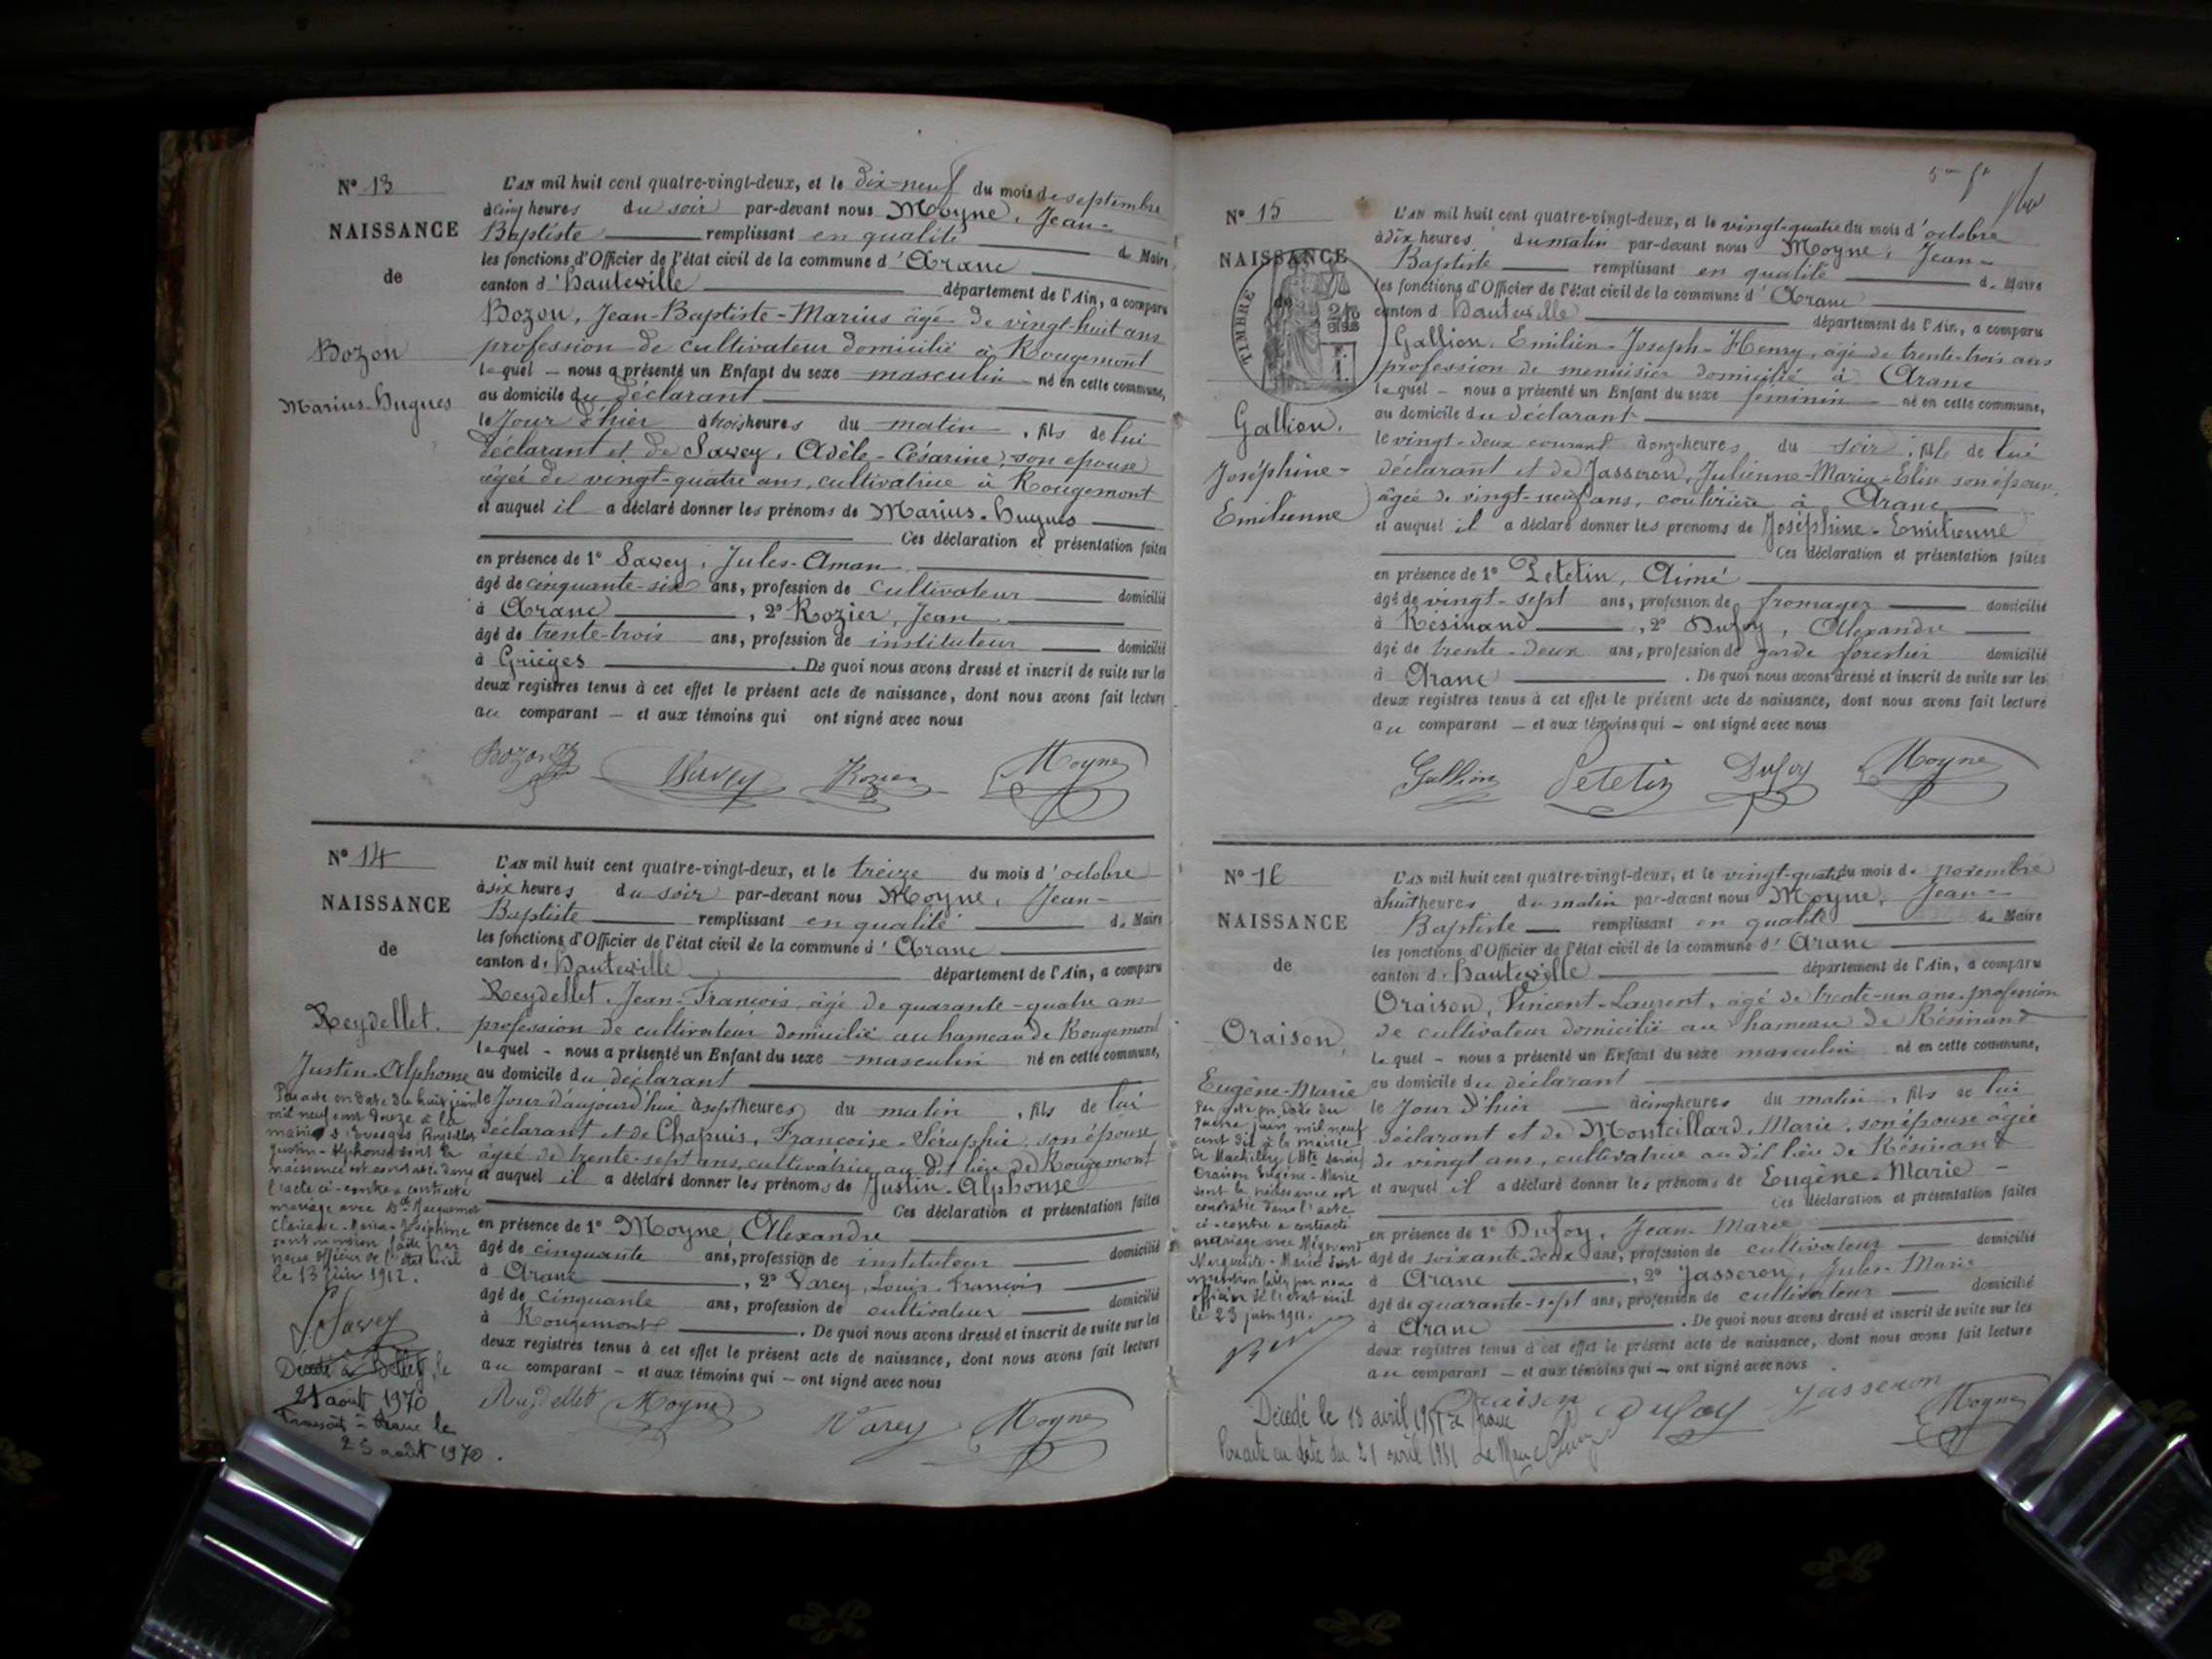 N° 13
NAISSANCE
de
Bozon
Marius-Hugues
L'AN mil huit cent quatre-vingt-deux, et le dix-neuf du mois de septembre
à cinq heures du soir par-devant nous Moyne, Jean-
Baptiste remplissant en qualité de Maire
les fonctions d'Officier de l'état civil de la commune d'Aranc
canton d'Hauteville département de l'Ain, a comparu
Bozon, Jean-Baptiste-Marius âgé de vingt-huit ans
profession de cultivateur domicilié à Rougemont
lequel — nous a présenté un Enfant du sexe masculin né en cette commune,
au domicile du déclarant
le Jour d'hier à trois heures du matin, fils de lui
déclarant et de Savey, Adèle-Césarine, son épouse
âgée de vingt-quatre ans, cultivatrice à Rougemont
et auquel il a déclaré donner les prénoms de Marius-Hugues
Ces déclaration et présentation faites
en présence de 1° Savey, Jules-Aman
âgé de cinquante-six ans, profession de cultivateur domicilié
à Aranc, 2° Rozier, Jean
âgé de trente-trois ans, profession de instituteur domicilié
à Grièges. De quoi nous avons dressé et inscrit de suite sur les
deux registres tenus à cet effet le présent acte de naissance, dont nous avons fait lecture
au comparant — et aux témoins qui ont signé avec nous
Bozon Savey Rozier Moyne
N° 14
NAISSANCE
de
Reydellet.
Justin-Alphonse
Par acte en date du huit juin
mil neuf cent douze à la
mairie d' Reydellet
Justin-Alphonse dont la
naissance est constatée dans
l'acte ci-contre a contracté
mariage avec Dlle
Clarisse-Maria-Joséphine
dont mention faite par
nous officier de l'état civil
le 13 juin 1912.
Savey
Décédé à Belley le
21 août 1970
Transcrit à Aranc le
25 août 1970.
L'AN mil huit cent quatre-vingt-deux, et le treize du mois d'octobre
à six heures du soir par-devant nous Moyne, Jean-
Baptiste remplissant en qualité de Maire
les fonctions d'Officier de l'état civil de la commune d'Aranc
canton d'Hauteville département de l'Ain, a comparu
Reydellet, Jean-François âgé de quarante-quatre ans
profession de cultivateur domicilié au hameau de Rougemont
lequel - nous a présenté un Enfant du sexe masculin né en cette commune,
au domicile du déclarant
le Jour d'aujourd'hui à sept heures du matin, fils de lui
déclarant et de Chapuis, Françoise-Séraphie, son épouse
âgée de trente-sept ans, cultivatrice au dit lieu de Rougemont
et auquel il a déclaré donner les prénoms de Justin-Alphonse
Ces déclaration et présentation faites
en présence de 1° Moyne, Alexandre
âgé de cinquante ans, profession de instituteur domicilié
à Aranc, 2° Varey, Louis-François
âgé de cinquante ans, profession de cultivateur domicilié
à Rougemont. De quoi nous avons dressé et inscrit de suite sur les
deux registres tenus à cet effet le présent acte de naissance, dont nous avons fait lecture
au comparant — et aux témoins qui — ont signé avec nous
Reydellet Moyne Varey Moyne
N° 15
NAISSANCE
de
TIMBRE
Gallion.
Joséphine-
Emilienne
L'AN mil huit cent quatre-vingt-deux, et le vingt-quatre du mois d'octobre
à dix heures du matin par-devant nous Moyne, Jean-
Baptiste remplissant en qualité de Maire
les fonctions d'Officier de l'état civil de la commune d'Aranc
canton d Hauteville département de l'Ain, a comparu
Gallion, Emilien-Joseph-Henry, âgé de trente-trois ans
profession de menuisier domicilié à Aranc
lequel - nous a présenté un Enfant du sexe féminin né en cette commune,
au domicile du déclarant
le vingt-deux courant à onze heures du soir, fille de lui
déclarant et de Jasseron, Julienne-Maria-Elise son épouse,
âgée de vingt-neuf ans, couturière à Aranc
et auquel il a déclaré donner les prénoms de Joséphine-Emilienne
Ces déclaration et présentation faites
en présence de 1° Petetin, Aimé
âgé de vingt-sept ans, profession de fromager domicilié
à Résinand, 2° Dufoy, Alexandre
âgé de trente-deux ans, profession de garde forestier domicilié
à Aranc. De quoi nous avons dressé et inscrit de suite sur les
deux registres tenus à cet effet le présent acte de naissance, dont nous avons fait lecture
au comparant — et aux témoins qui — ont signé avec nous
Gallion Petetin Dufoy Moyne
N° 16
NAISSANCE
de
Oraison,
Eugène-Marie
Par acte en date du
quatre juin mil neuf
cent dix à la mairie
de Machilly (Hte Savoie)
Oraison Eugène-Marie
dont la naissance est
constatée dans l'acte
ci-contre a contracté
mariage avec
Marguerite-Marie dont
mention faite par nous
officier de l'état civil
le 23 juin 1911.
L'AN mil huit cent quatre-vingt-deux, et le vingt-quatre du mois de novembre
à huit heures du matin par-devant nous Moyne, Jean-
Baptiste remplissant en qualité de Maire
les fonctions d'Officier de l'état civil de la commune d'Aranc
canton d'Hauteville département de l'Ain, a comparu
Oraison, Vincent-Laurent, âgé de trente-un ans, profession
de cultivateur domicilié au hameau de Résinand
lequel - nous a présenté un Enfant du sexe masculin né en cette commune,
au domicile du déclarant
le Jour d'hier à cinq heures du matin, fils de lui
déclarant et de Montaillard, Marie, son épouse âgée
de vingt ans, cultivatrice au dit lieu de Résinand
et auquel il a déclaré donner les prénoms de Eugène-Marie
Ces déclaration et présentation faites
en présence de 1° Dufoy, Jean-Marie
âgé de soixante-deux ans, profession de cultivateur domicilié
à Aranc, 2° Jasseron, Jules-Marie
âgé de quarante-sept ans, profession de cultivateur domicilié
à Aranc. De quoi nous avons dressé et inscrit de suite sur les
deux registres tenus à cet effet le présent acte de naissance, dont nous avons fait lecture
au comparant — et aux témoins qui — ont signé avec nous
Oraison Dufoy Jasseron Moyne
Décédé le 18 avril 1951 à Aranc
Par acte en date du 21 avril 1951 Le Maire